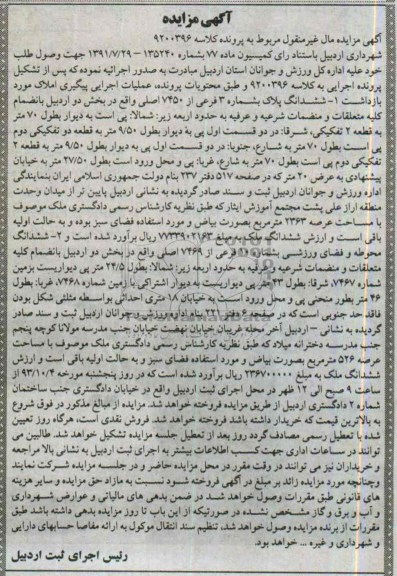 آگهی مزایده
آگهی مزایده مال غیرمنقول مربوط به پرونده کلاسه ۹۲۰۰۳۹۶
شهرداری اردبیل باستناد رای کمیسیون ماده ۷۷ بشماره ۱۳۵۲۴۰ – ۱۳۹۱/۷/۲۹ جهت وصول طلب
خود علیه اداره کل ورزش و جوانان استان اردبیل مبادرت به صدور اجرائیه نموده که پس از تشکیل
پرونده اجرایی به کلاسه ۹۲۰۰۳۹۶ و طبق محتویات پرونده، عملیات اجرایی پیگیری املاک مورد
بازداشت ۱- ششدانگ پلاک بشماره ۳ فرعی از ۷۴۵۰ اصلی واقع در بخش دو اردبیل بانضمام
کلیه متعلقات و منضمات شرعیه و عرفیه به حدود اربعه زیر: شمالا: پی است به دیوار بطول ۷۰ متر
به قطعه ۲ تفکیکی، شرقا: در دو قسمت اول پی به دیوار بطول ۹/۵۰ متر به قطعه دو تفکیکی دوم
پی است بطول ۷۰ متر به شارع، جنوبا: در دو قسمت اول پی به دیوار بطول ۹/۵۰ متر به قطعه ۲
تفکیکی دوم پی است بطول ۷۰ متر به شارع، غربا: پی و محل ورود است بطول ۲۷/۵۰ متر به خیابان
پیشنهادی به عرض ۲۰ متر که در صفحه ۵۱۷ دفتر ۲۳۷ بنام دولت جمهوری اسلامی ایران بنمایندگی
اداره ورزش و جوانان اردبیل ثبت و سند صادر گردیده به نشانی اردبیل پایین تر از میدان وحدت
منطقه اراز علی پشت مجتمع آموزش ایثار که طبق نظریه کارشناس رسمی دادگستری ملک موصوف
با مساحت عرصه ۲۳۶۳ مترمربع بصورت بیاض و مورد استفاده فضای سبز بوده و به حالت اولیه
باقی است و ارزش ششدانگ ملک به مبلغ ریال برآورد شده است و ۲- ششدانگ
محوطه و فضای ورزشی بشماره فرعی از ۷۴۶۹ اصلی واقع در بخش دو اردبیل بانضمام کلیه
متعلقات و منضمات شرعیه و عرفیه به حدود اربعه زیر: شمالا: بطول ۲۴/۵ متر پی دیواریست بزمین
شماره ۷۴۶۷، شرقا: بطول ۴۳ متر پی دیواریست به دیوار اشتراکی با زمین شماره ۷۴۶۸، غربا: بطول
۴۶ متر بطور منحنی پی و محل ورود است به خیابان ۱۸ متری احداثی بواسطه مثلثی شکل بودن
فاقد حد جنوبی است که در صفحه ۶ دفتر ۲۲۱ بنام اداره ورزش و جوانان اردبیل ثبت و سند صادر
گردیده به نشانی – اردبیل آخر محله غریبان خیابان نهضت خیابان جنب مدرسه مولانا کوچه پنجم
جنب مدرسه دخترانه میلاد که طبق نظریه کارشناس رسمی دادگستری ملک موصوف با مساحت
عرصه ۵۲۶ مترمربع بصورت بیاض و مورد استفاده فضای سبز و به حالت اولیه باقی است و ارزش
ششدانگ ملک به مبلغ ۲۳۶۷۰۰۰۰۰۰ ریال برآورد شده است که در روز پنجشنبه مورخه ۹۳/۱۰/۴ از
ساعت ۹ صبح الی ۱۲ ظهر در محل اجرای ثبت اردبیل واقع در خیابان دادگستری جنب ساختمان
شماره ۲ دادگستری اردبیل از طریق مزایده فروخته خواهد شد. مزایده از مبالغ مذکور در فوق شروع
به بالاترین قیمت که خریدار داشته باشد فروخته خواهد شد. فروش نقدی است، هرگاه روز تعیین
شده با تعطیل رسمی مصادف گردد روز بعد از تعطیل جلسه مزایده تشکیل خواهد شد. طالبین می
توانند در ساعات اداری جهت کسب اطلاعات بیشتر به اجرای ثبت اردبیل به نشانی بالا مراجعه
و خریداران نیز می توانند در وقت مقرر در محل مزایده حاضر و در جلسه مزایده شرکت نمایند
وچنانچه مورد مزایده زائد بر مبلغ در آگهی فروخته شود نسبت به مازاد حق مزایده و سایر هزینه
های قانونی طبق مقررات وصول خواهد شد در ضمن بدهی های مالیاتی و عوارض شهرداری
و آب و برق و گاز مشخص نشده در صورتیکه از این باب تا روز مزایده بدهی داشته باشد طبق
مقررات از برنده مزایده وصول خواهد شد، تنظیم سند انتقال موکول به ارائه مفاصا حسابهای دارایی
و شهرداری و غیره ... خواهد بود.
رئیس اجرای ثبت اردبیل